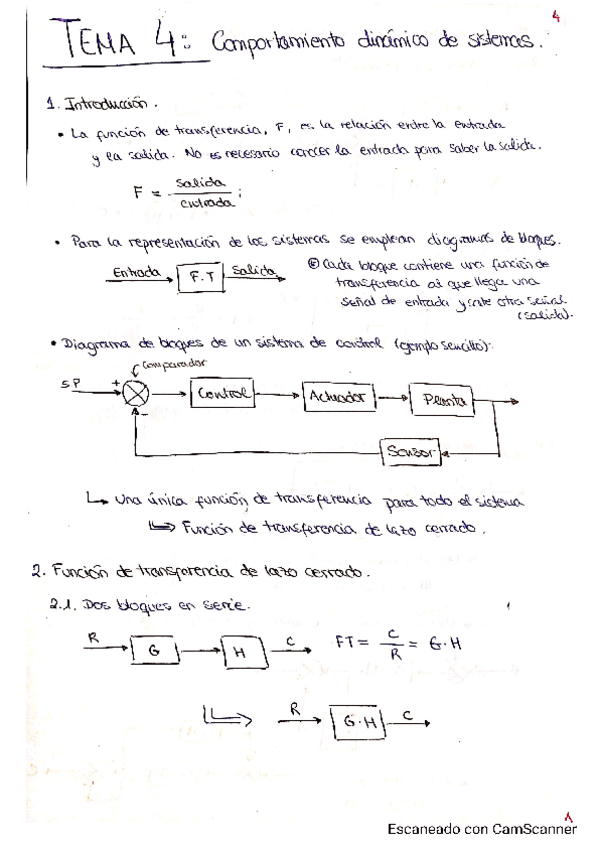 4
TEMA 4: Comportamiento dinámico de sistemas.
1. Introducción.
• La función de transferencia, F, es la relación entre la entrada
y la salida. No es necesario conocer la entrada para saber la salida.
F = salida / entrada ;
• Para la representación de los sistemas se emplean diagramas de bloques.
Entrada F.T Salida
Cada bloque contiene una función de
transferencia al que llega una
señal de entrada y sale otra señal
(salida).
• Diagrama de bloques de un sistema de control (ejemplo sencillo):
Comparador
SP + - Control Actuador Planta
Sensor
Una única función de transferencia para todo el sistema
Función de transferencia de lazo cerrado.
2. Función de transferencia de lazo cerrado.
2.1. Dos bloques en serie.
R G H C FT = C/R = G·H
R G·H C
1
Escaneado con CamScanner